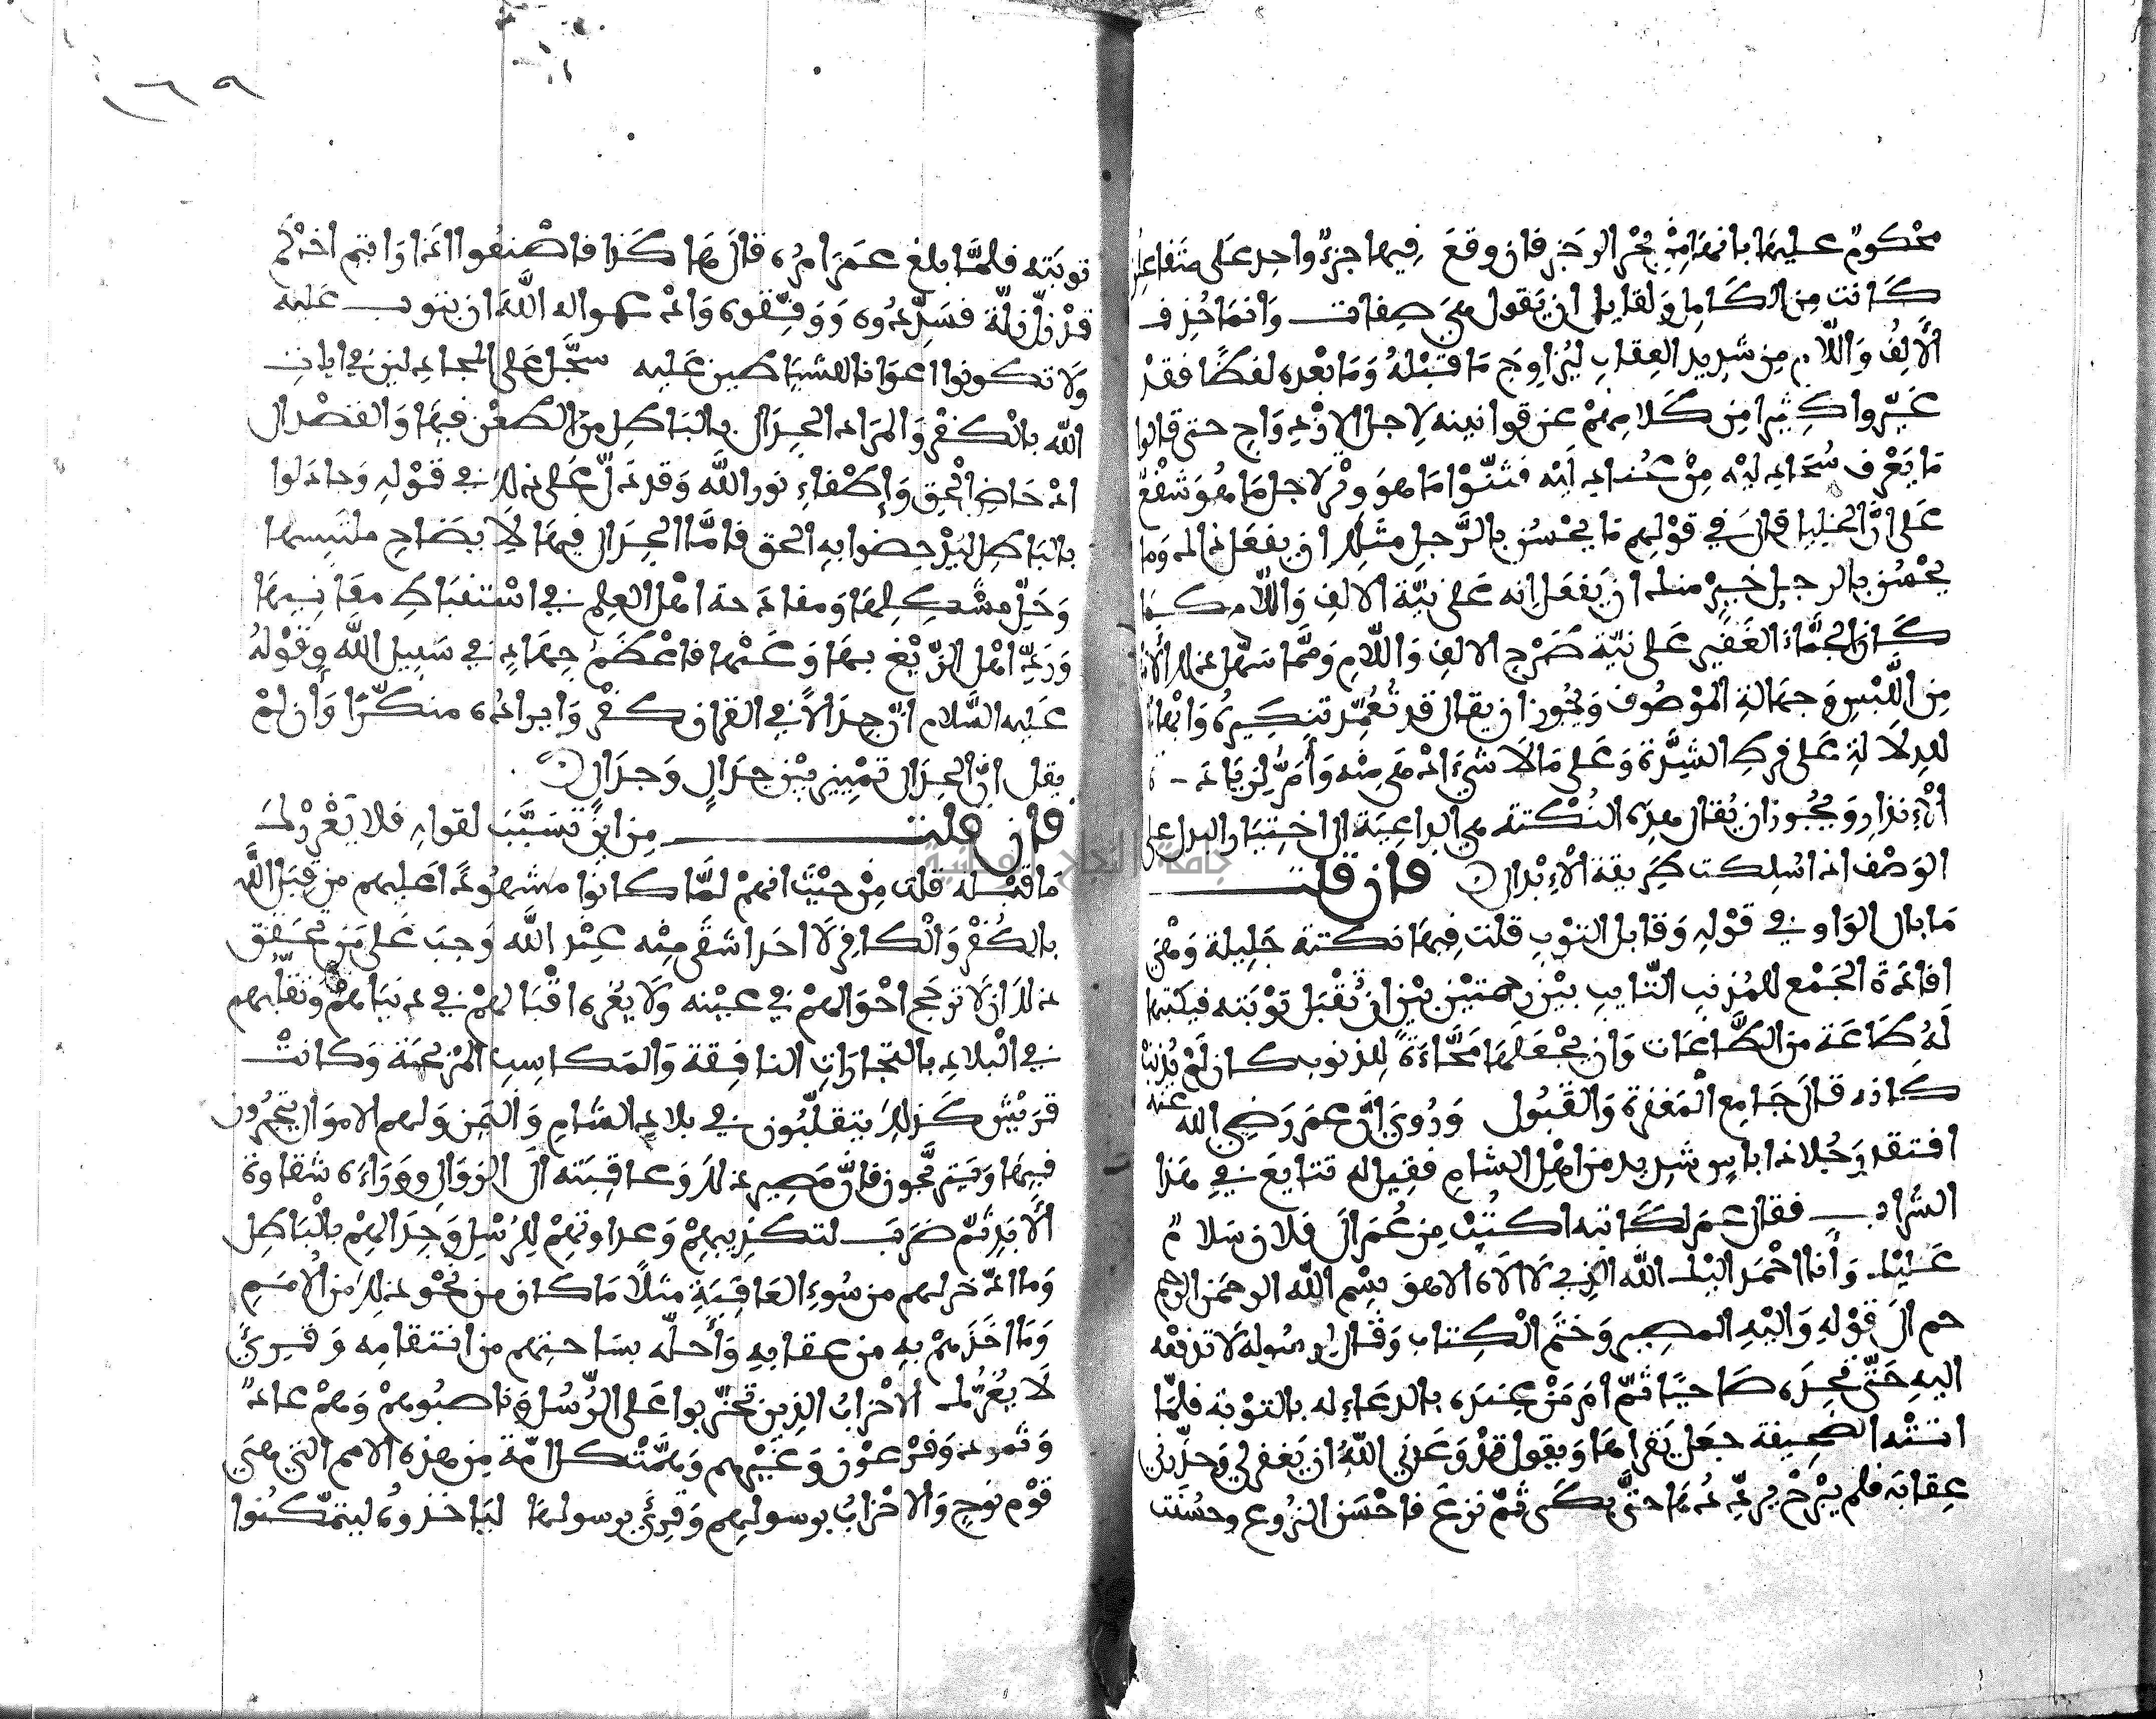 محكوم عليها بانها من بحر الرجز فان وقع فيها جزء واحد على متفاعلن
كانت من الكامل ولقايل ان يقول هي صفات وانما حذف
الالف واللام من شديد العقاب ليزاوج ما قبله وما بعده لفظا فقد
غيروا كثيرا من كلامهم عن قوانينه لاجل الازدواج حتى قالوا
ما يعرف سحادليه من عنادليه فثنوا ما هو وتر لاجل ما هو شفع
على ان الخليل قال في قولهم ما يحسن بالرجل مثلك ان يفعل ذلك وما
يحسن بالرجل خير منك ان يفعل انه على نية الالف واللام كما
كان الجماء الغفير على نية طرح الالف واللام ومما سهل ذلك الامن
من اللبس وجهالة الموصوف ويجوز ان يقال قد تعمد تنكيره وابهامه
للدلالة على فرط الشدة وعلى ما لا شيء ادهى منه وامر لزيادة
الانذار ويجوز ان يقال هذه النكتة هي الداعية الى اختيار البدل على
الوصف اذا سلكت طريقة الابدال فان قلت
ما بال الواو في قوله وقابل التوب قلت فيها نكتة جليلة وهي
افادة الجمع للمذنب التايب بين رحمتين بين ان تقبل توبته فيكتبها
له طاعة من الطاعات وان يجعلها محاءة للذنوب كان لم يذنب
كانه قال جامع المغفرة والقبول وروي ان عمر رضي الله عنه
افتقد رجلا ذا باس شديد من اهل الشام فقيل له تتايع في هذا
الشراب فقال عمر لكاتبه اكتب من عمر الى فلان سلام
عليك وانا احمد اليك الله الذي لا اله الا هو بسم الله الرحمن الرحيم
حم الى قوله واليه المصير وختم الكتاب وقال لرسوله لا تدفعه
اليه حتى تجده صاحيا ثم امر من عنده بالدعاء له بالتوبة فلما
اتته الصحيفة جعل يقراها ويقول قد وعدني الله ان يغفر لي وحذرني
عقابه فلم يبرح يرددها حتى بكى ثم نزع فاحسن النزوع وحسنت
١٦٩
توبته فلما بلغ عمر امره قال هكذا فاصنعوا اذا رايتم اخاكم
قد زل زلة فسددوه ووفقوه وادعوا له الله ان يتوب عليه
ولا تكونوا اعوانا للشياطين عليه سجل على المجادلين في ايات
الله بالكفر والمراد الجدال بالباطل من الطعن فيها والقصد الى
ادحاض الحق واطفاء نور الله وقد دل على ذلك في قوله وجادلوا
بالباطل ليدحضوا به الحق فاما الجدال فيها لايضاح ملتبسها
وحل مشكلها ومقادحة اهل العلم في استنباط معانيها
ورد اهل الزيغ بها وعنها فاعظم جهاد في سبيل الله وقوله
عليه السلام ان جدالا في القران كفر وايراده منكرا وان لم
يقل ان الجدال تمييز بين جدال وجدال
فان قلت من اين تسبب لقوله فلا يغررك
ما قبله قلت من حيث انهم لما كانوا مشهودا عليهم من قبل الله
بالكفر والكافر لا احد اشقى منه عند الله وجب على من تحقق
ذلك ان لا ترجح احوالهم في عينه ولا يغره اقبالهم في دنياهم وتقلبهم
في البلاد بالتجارات النافقة والمكاسب المربحة وكانت
قريش كذلك يتقلبون في بلاد الشام واليمن ولهم الاموال يتجرون
فيها ويتربحون فان مصير ذلك وعاقبته الى الزوال ووراءه شقاوة
الابد ثم ضرب لتكذيبهم وعداوتهم للرسل وجدالهم بالباطل
وما ادخر لهم من سوء العاقبة مثلا ما كان من نحو ذلك من الامم
وما اخذهم به من عقابه واحله بساحتهم من انتقامه وقرئ
لا يغرك الاحزاب الذين تحزبوا على الرسل وناصبوهم وهم عاد
وثمود وفرعون وغيرهم وهمت كل امة من هذه الامم التي هي
قوم نوح والاحزاب برسولهم وقرئ برسولها لياخذوه ليتمكنوا